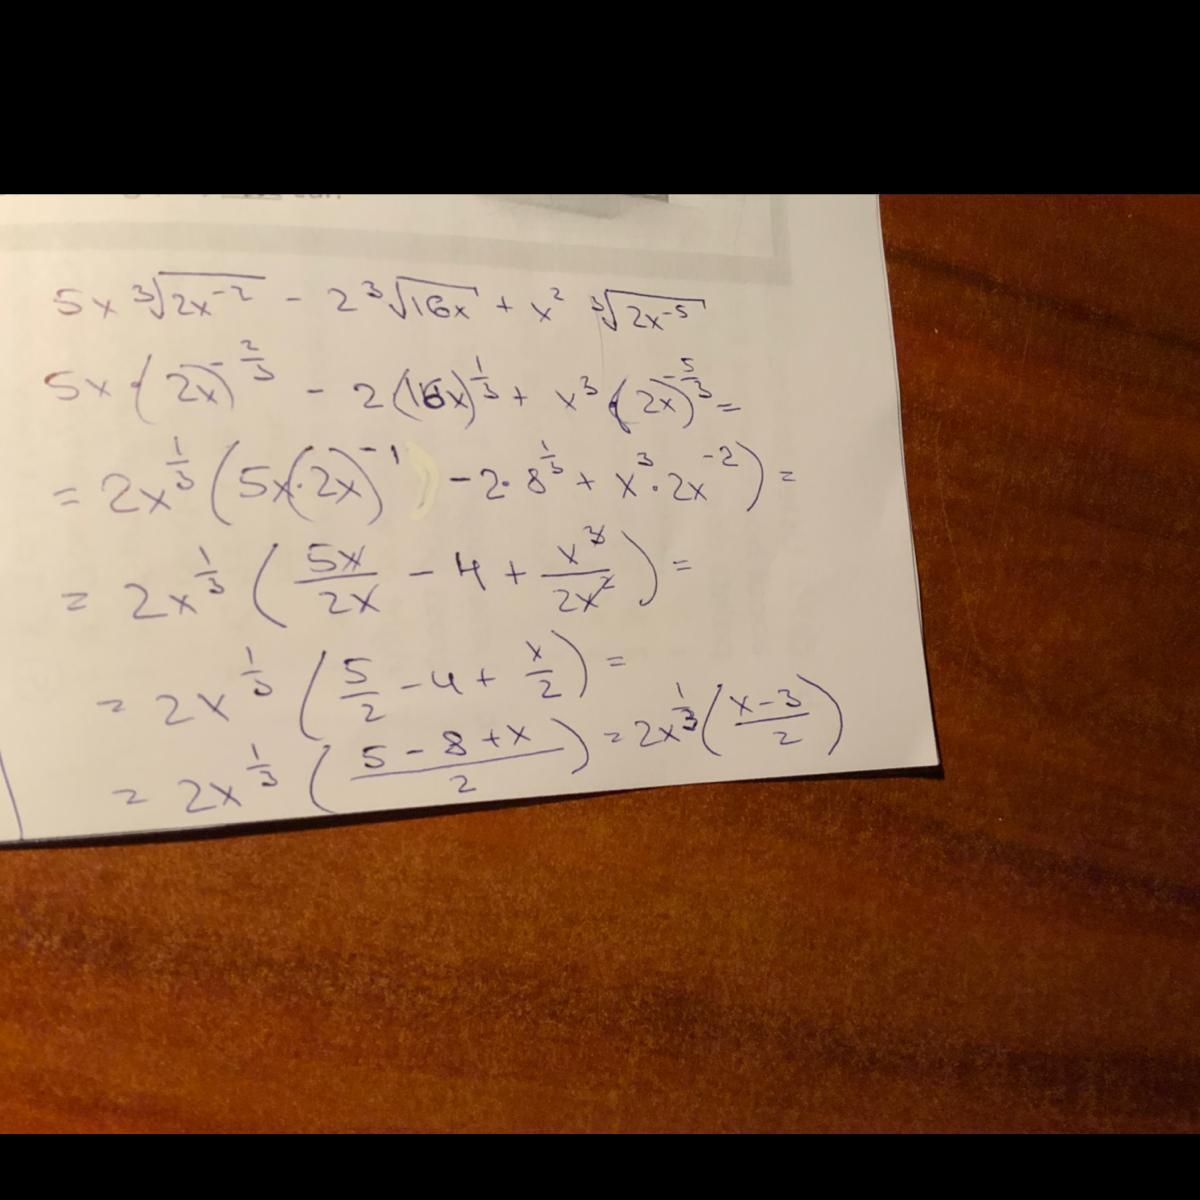 5x ∛(2x⁻²) - 2 ∛(16x) + x² ∛(2x⁻⁵)
5x · (2x)^(-2/3) - 2 (16x)^(1/3) + x³ · (2x)^(-5/3) =
= 2x^(1/3) (5x(·2x)⁻¹ ) - 2 · 8^(1/3) + x³ · 2x⁻²) =
= 2x^(1/3) (5x/2x - 4 + x³/2x²) =
= 2x^(1/3) (5/2 - 4 + x/2) =
= 2x^(1/3) ((5 - 8 + x)/2) = 2x^(1/3) ((x - 3)/2)